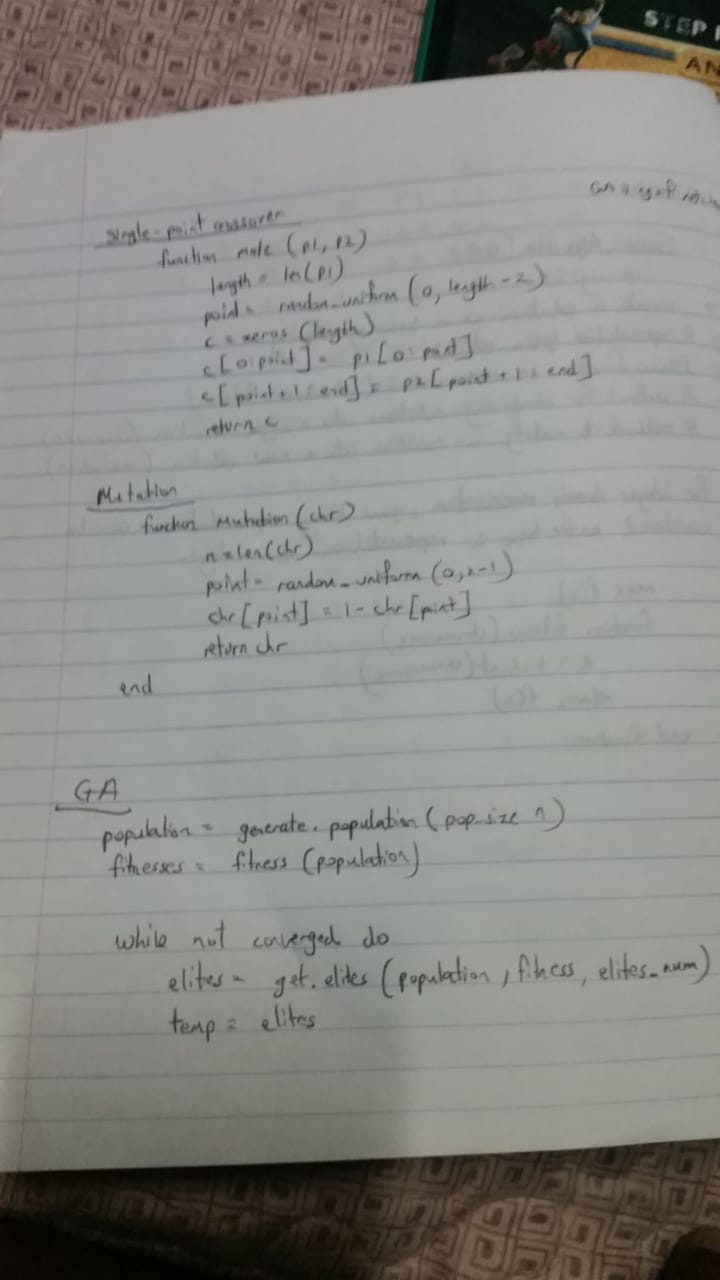 STEP
AN
single-point crossover
function mate (p1, p2)
length = len(p1)
point = random_uniform (0, length - 2)
c = zeros (length)
c[0:point] = p1[0:point]
c[point+1:end] = p2[point+1:end]
return c
Mutation
function Mutation (chr)
n = len(chr)
point = random_uniform (0, n-1)
chr[point] = 1 - chr[point]
return chr
end
GA
population = generate.population (pop-size n)
fitnesses = fitness (population)
while not converged do
elites = get.elites (population, fitness, elites_num)
temp = elites